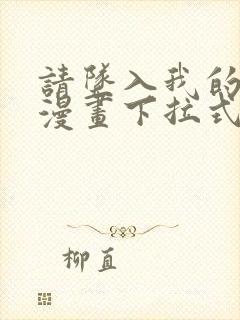 請墜入我的
漫畫下拉式
柳直